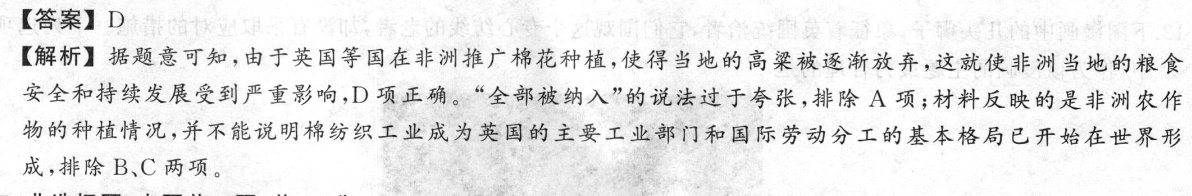 【答案】D
【解析】据题意可知,由于英国等国在非洲推广棉花种植,使得当地的高粱被逐渐放弃,这就使非洲当地的粮食
安全和持续发展受到严重影响,D 项正确。“全部被纳入”的说法过于夸张,排除 A 项;材料反映的是非洲农作
物的种植情况,并不能说明棉纺织工业成为英国的主要工业部门和国际劳动分工的基本格局已开始在世界形
成,排除 B、C 两项。